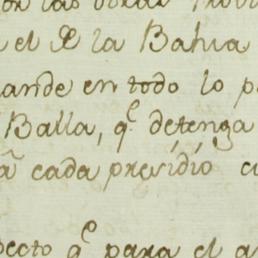 las
el de la Bahia
ande en todo lo p
Balla, q.e detenga
a cada presidio
pecto q.e para el a